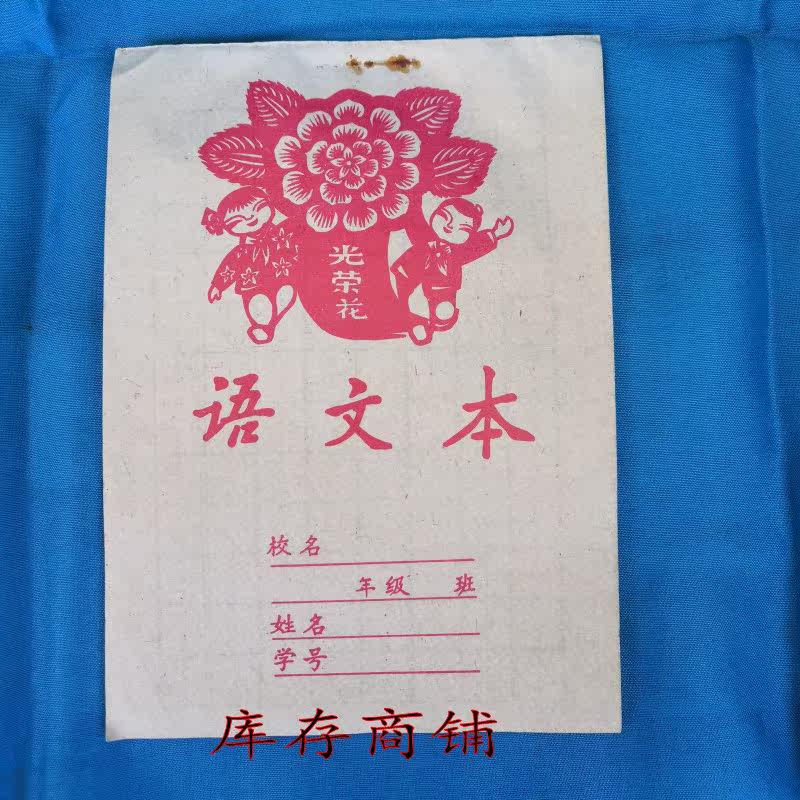 光荣花
语文本
校名
年级 班
姓名
学号
库存商铺